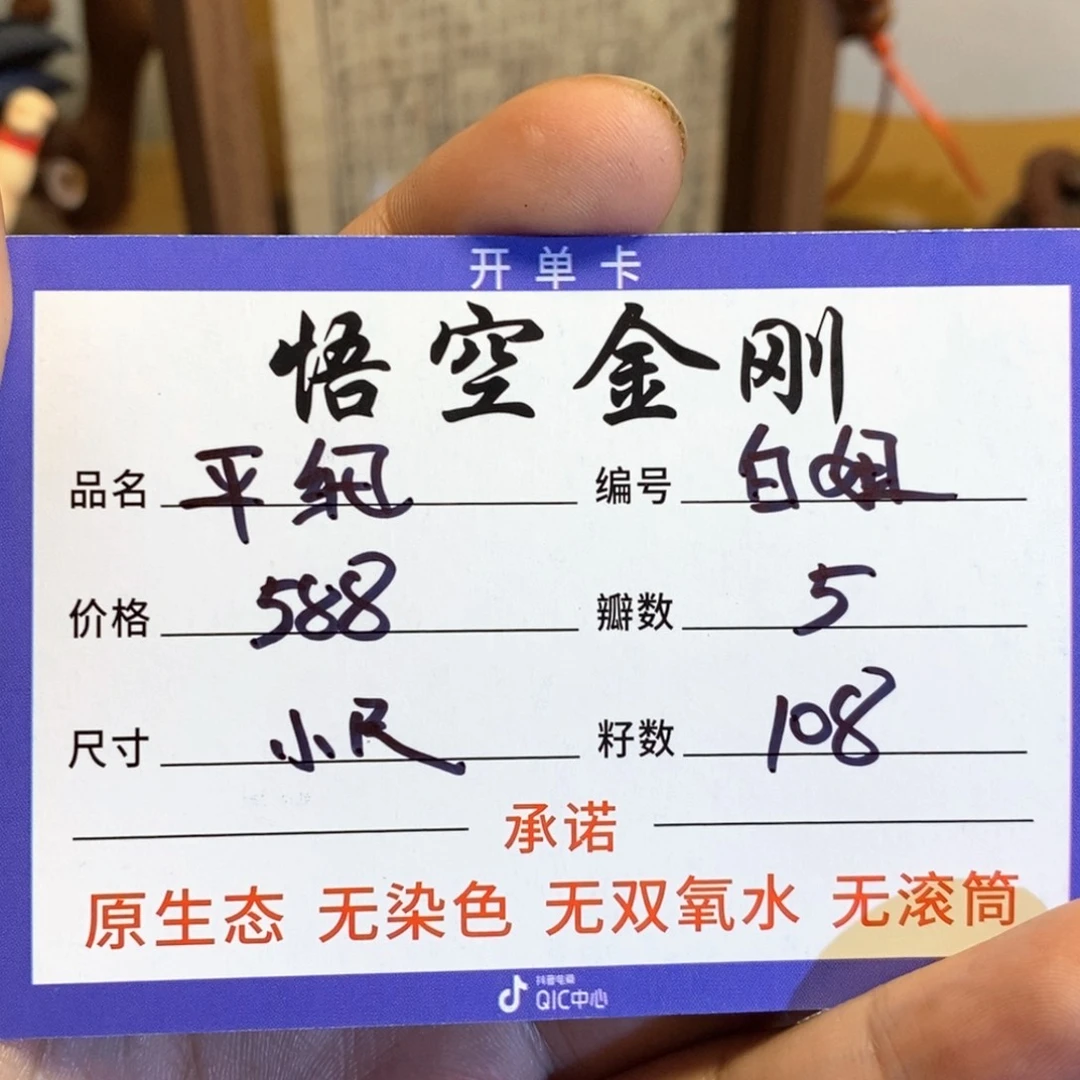 开单卡
悟空金刚
品名 平纹 编号 白
价格 588 瓣数 5
尺寸 小尺 籽数 108
承诺
原生态 无染色 无双氧水 无滚筒
抖音电商
QIC中心